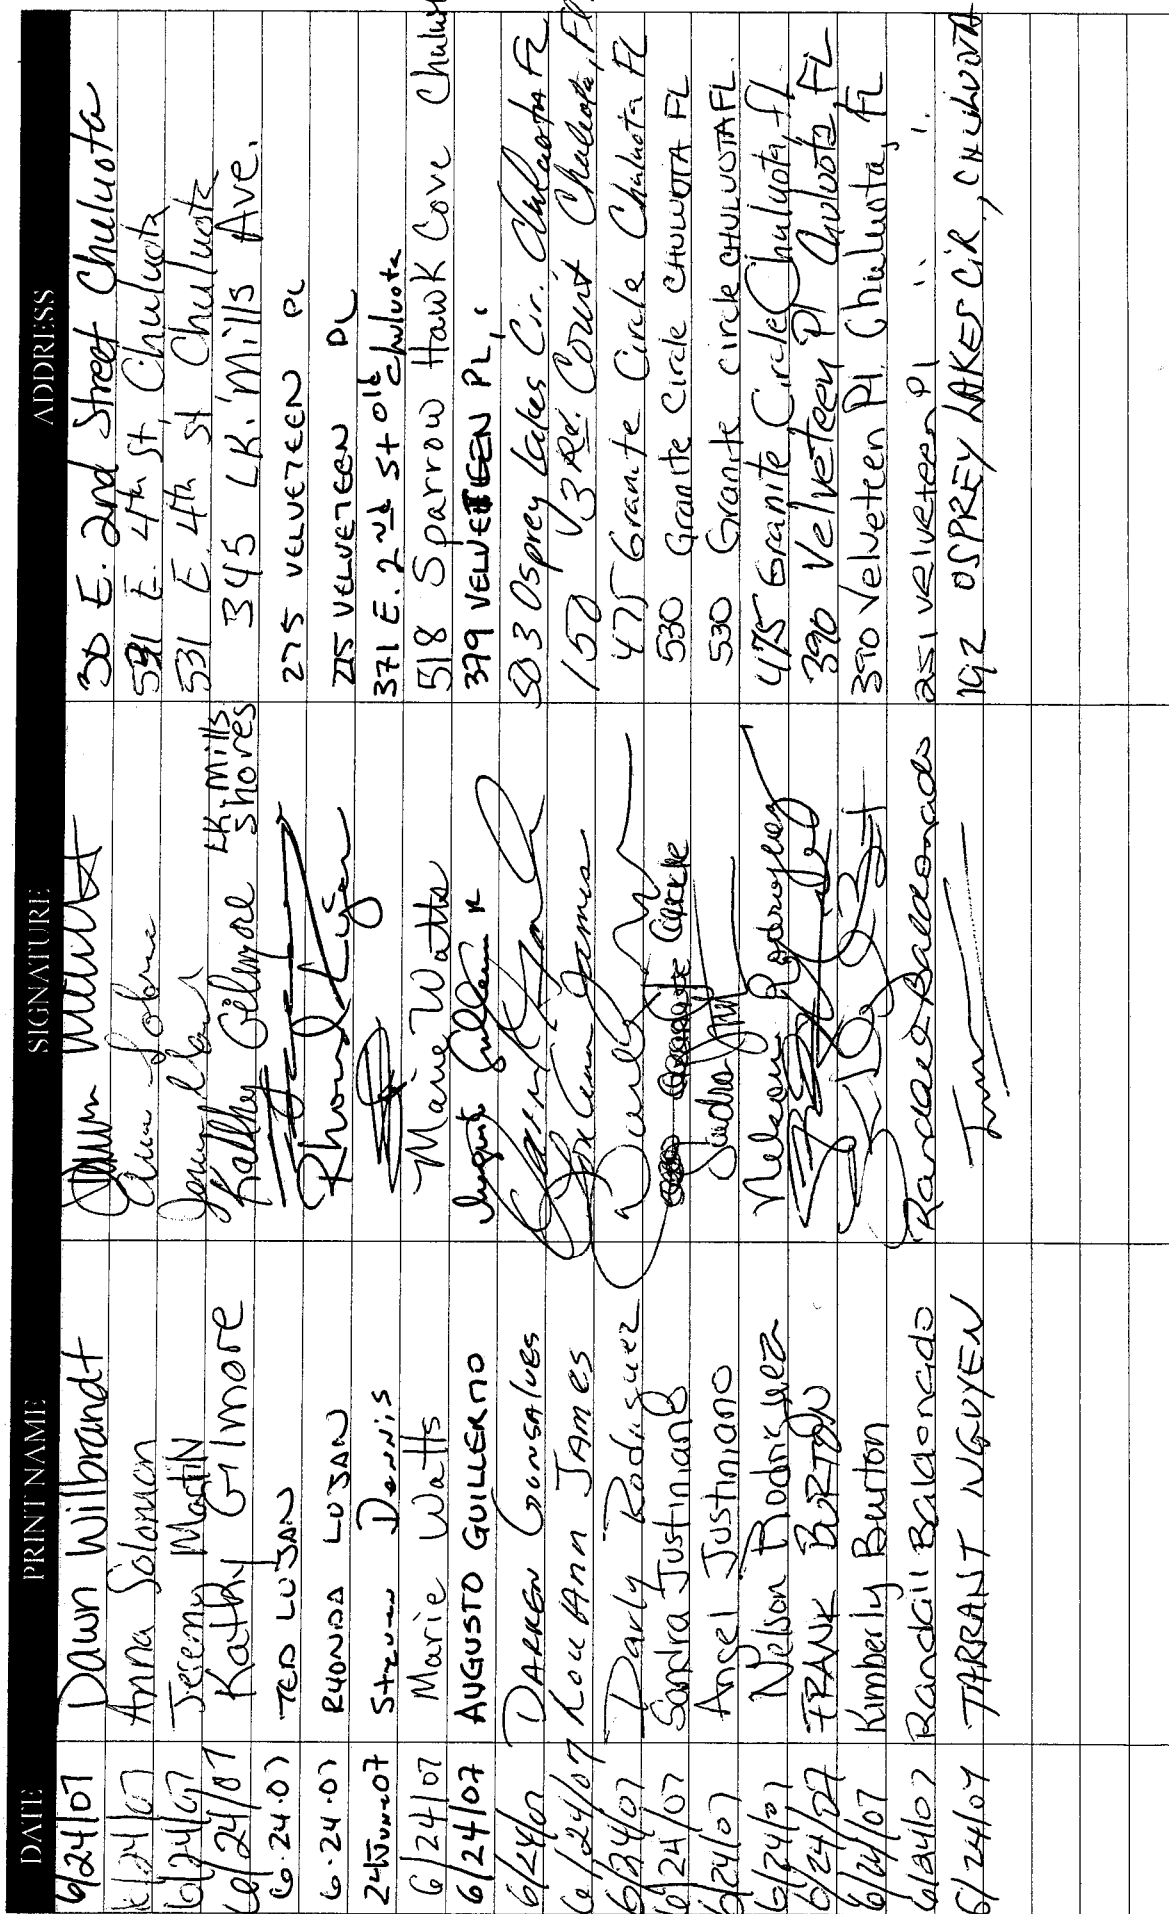 DATE PRINT NAME SIGNATURE ADDRESS
6/24/07 Dawn Wilbrandt 30 E. 2nd Street Chuluota
6/24/07 Anna Solomon 531 E. 4th St, Chuluota
6/24/07 Jeremy Martin 531 E 4th St Chuluota
6/24/07 Kathy Gilmore Kathy Gilmore LK. Mills Shores 345 LK. Mills Ave.
6.24.07 TED LUJAN 275 VELVETEEN PL
6.24.07 RHONDA LUJAN Rhonda Lujan 275 VELVETEEN PL
24June07 Steven Dennis 371 E. 2nd St Old Chuluota
6/24/07 Marie Watts Marie Watts 518 Sparrow Hawk Cove
6/24/07 AUGUSTO GUILLERMO 379 VELVETEEN PL,
6/24/07 DARREN GONSALVES 503 Osprey Lakes Cir. Chuluota FL
6/24/07 Lou Ann James Lou Ann James 150 3rd. Court Chuluota, FL
6/24/07 Darly Rodriguez 475 Granite Circle Chuluota FL
6/24/07 Sandra Justiniano 530 Granite Circle CHULUOTA FL
6/24/07 Angel Justiniano 530 Granite circle CHULUOTA FL.
6/24/07 Nelson Rodriguez Nelson Rodriguez 475 Granite Circle Chuluota, FL
6/24/07 FRANK BURTON 390 Velveteen Pl Chuluota FL
6/24/07 Kimberly Burton 390 Velveteen Pl. Chuluota, FL
6/24/07 Randall Baldonado 251 velveteen Pl " "
6/24/07 TARRANT NGUYEN 192 OSPREY LAKES CIR., CHULUOTA